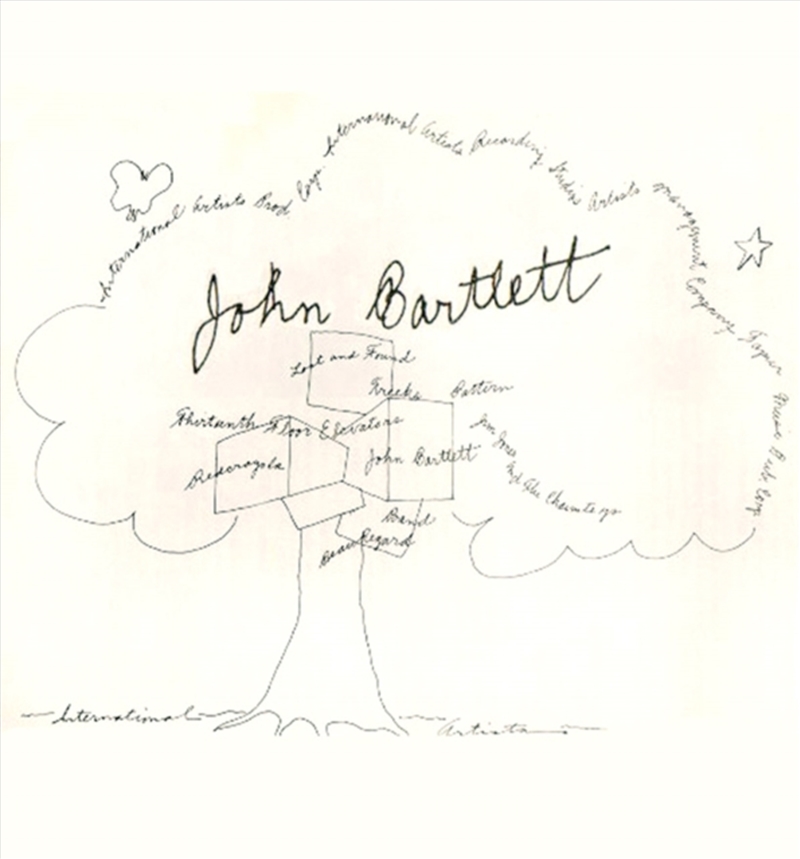 International Artists Prod Corp.
International Artists Recording Studios
Artists management Company
Tapier Music Pub Corp
John Bartlett
Lost and Found
Freeks Pattern
Thirteenth Floor Elevators
John Bartlett
Band
Beau Regard
International Artists